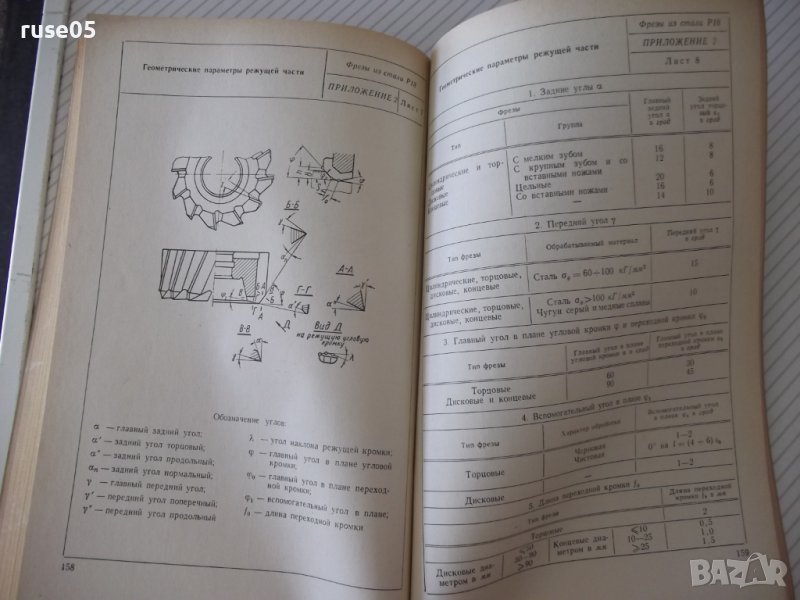 ruse05
Геометрические параметры режущей части
Фрезы из стали Р18
ПРИЛОЖЕНИЕ 2
Лист 7
Б-Б
А-А
Г-Г
В-В
Вид Д
на режущую угловую
кромку
Обозначение углов:
α — главный задний угол;
α′ — задний угол торцовый;
α″ — задний угол продольный;
αн — задний угол нормальный;
γ — главный передний угол;
γ′ — передний угол поперечный;
γ″ — передний угол продольный
λ — угол наклона режущей кромки;
φ — главный угол в плане угловой
кромки;
φ₀ — главный угол в плане переход-
ной кромки;
φ₁ — вспомогательный угол в плане;
f₀ — длина переходной кромки
158
Геометрические параметры режущей части
Фрезы из стали Р18
ПРИЛОЖЕНИЕ 2
Лист 8
1. Задние углы α
Фрезы
Тип
Группа
Главный задний угол α в град
Задний угол торцо-
в град
Цилиндрические и тор-
С мелким зубом 16 8
С крупным зубом и со 12 8
вставными ножами
Цельные 20 6
Со вставными ножами 16 6
— 14 10
2. Передний угол γ
Тип фрезы
Обрабатываемый материал
Передний угол γ в град
Цилиндрические, торцовые,
дисковые, концевые
Сталь σ = 60÷100 кГ/мм²
15
Цилиндрические, торцовые,
дисковые, концевые
Сталь σ >100 кГ/мм²
Чугун серый и медные сплавы
10
3. Главный угол в плане угловой кромки φ и переходной кромки φ₀
Тип фрезы
Главный угол в плане угловой кромки в град
Главный угол в плане переходной кромки в град
Торцовые 60 30
Дисковые и концевые 90 45
4. Вспомогательный угол в плане φ₁
Тип фрезы
Характер обработки
Вспомогательный угол в плане φ₁ в град
Торцовые
Черновая 1—2
Чистовая 0° на l = (4÷6) s₀
Дисковые — 1—2
5. Длина переходной кромки f₀
Тип фрезы
Длина переходной кромки f₀ в мм
Торцовые 2
Дисковые диа-
метром в мм
≤50
50—80
≥90
Концевые диа-
метром в мм
≤10 0,5
10—25 1,0
≥25 1,5
159
BAZAR